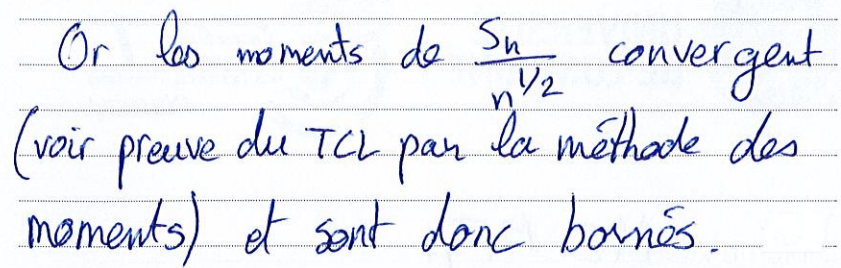 Or les moments de Sn/n^1/2 convergent
(voir preuve du TCL par la méthode des
moments) et sont donc bornés.